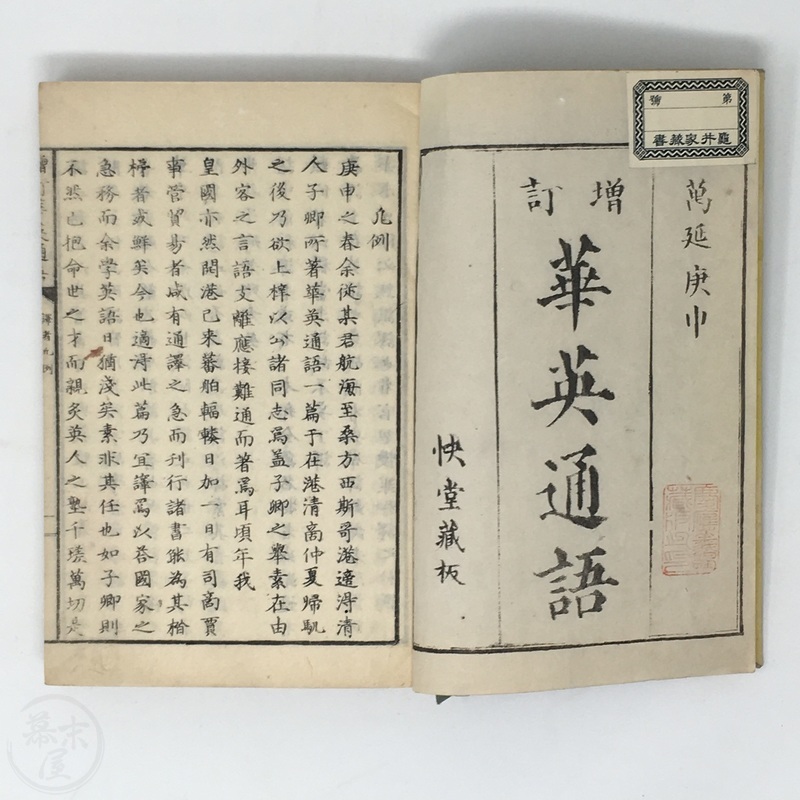 第 號
龜井家藏書
萬延庚申
增訂
華英通語
快堂藏板
凡例
庚申之春余従某君航海至桑方西斯哥港適得清
人子卿所著華英通語一篇于在港清商仲夏歸帆
之後乃欲上梓以公諸同志焉盖子卿之舉素在由
外客之言語支離應接難通而著焉耳頃年我
皇國亦然開港已来蕃舶輻輳日加一日有司商賈
事管貿易者咸有通譯之急而刊行諸書能為其楷
梯者或鮮矣今也適得此篇乃宜譯焉以荅國家之
急務而余學英語日猶淺矣素非其任也如子卿則
不然已抱命世之才而親炙英人之塾千瑳萬切是
譯者凡例
幕末屋